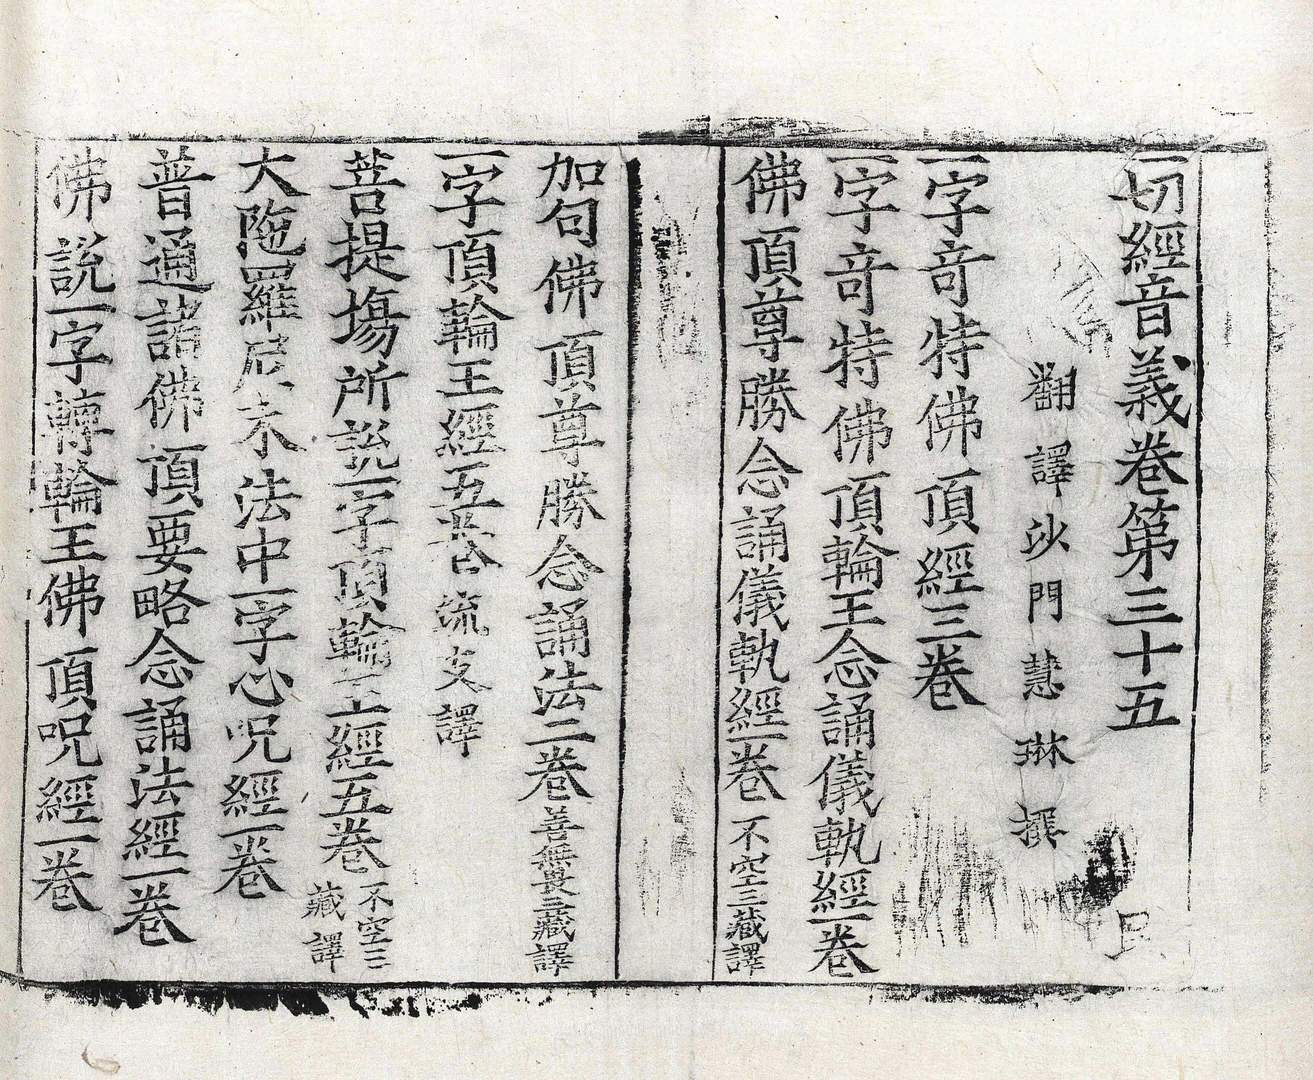 一切經音義卷第三十五
翻譯沙門慧琳撰
一字竒特佛頂經三卷
一字竒特佛頂輪王念誦儀軌經一卷
佛頂尊勝念誦儀軌經一卷 不空三藏譯
加句佛頂尊勝念誦法二卷 善無畏三藏譯
一字頂輪王經五卷 流支譯
菩提場所說一字頂輪王經五卷 不空三藏譯
大陁羅尼末法中一字心呪經一卷
普通諸佛頂要略念誦法經一卷
佛說一字轉輪王佛頂呪經一卷